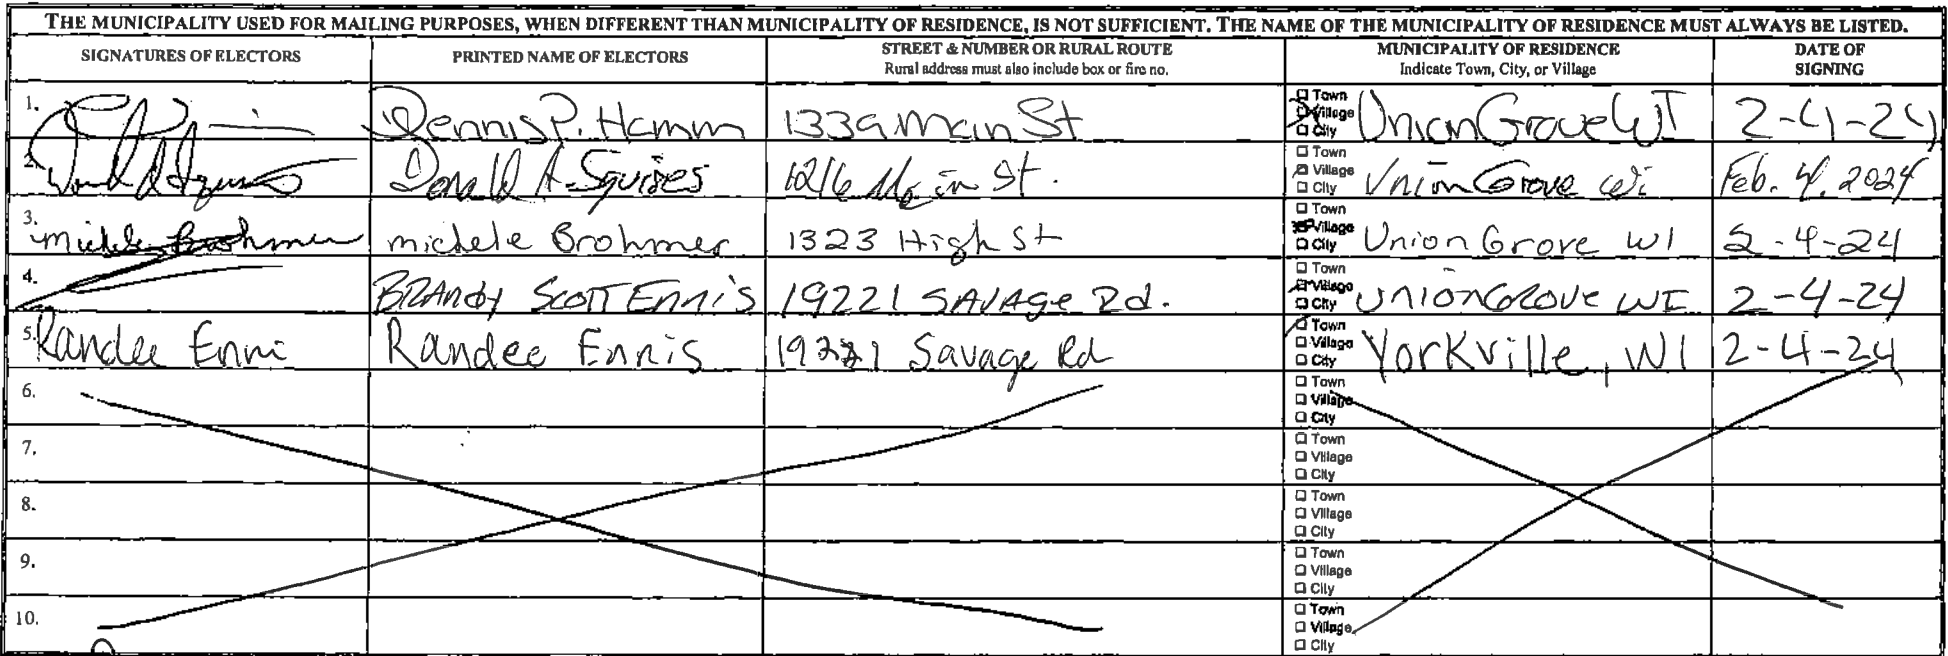 THE MUNICIPALITY USED FOR MAILING PURPOSES, WHEN DIFFERENT THAN MUNICIPALITY OF RESIDENCE, IS NOT SUFFICIENT. THE NAME OF THE MUNICIPALITY OF RESIDENCE MUST ALWAYS BE LISTED.
SIGNATURES OF ELECTORS PRINTED NAME OF ELECTORS STREET & NUMBER OR RURAL ROUTE MUNICIPALITY OF RESIDENCE DATE OF
Rural address must also include box or fire no. Indicate Town, City, or Village SIGNING
1. Dennis P. Hamm 1339 Main St Town Village City Union Grove WI 2-4-24
2. Donald A. Squires 1216 Main St. Town Village City Union Grove Wi Feb. 4, 2024
3. Michele Brohmer michele Brohmer 1323 High St Town Village City Union Grove WI 2-4-24
4. BRANDY SCOTT ENNIS 19221 SAVAGE Rd. Town Village City UNION GROVE WI 2-4-24
5. Randee Enni Randee Ennis 19221 Savage Rd Town Village City Yorkville, WI 2-4-24
6. Town Village City
7. Town Village City
8. Town Village City
9. Town Village City
10. Town Village City